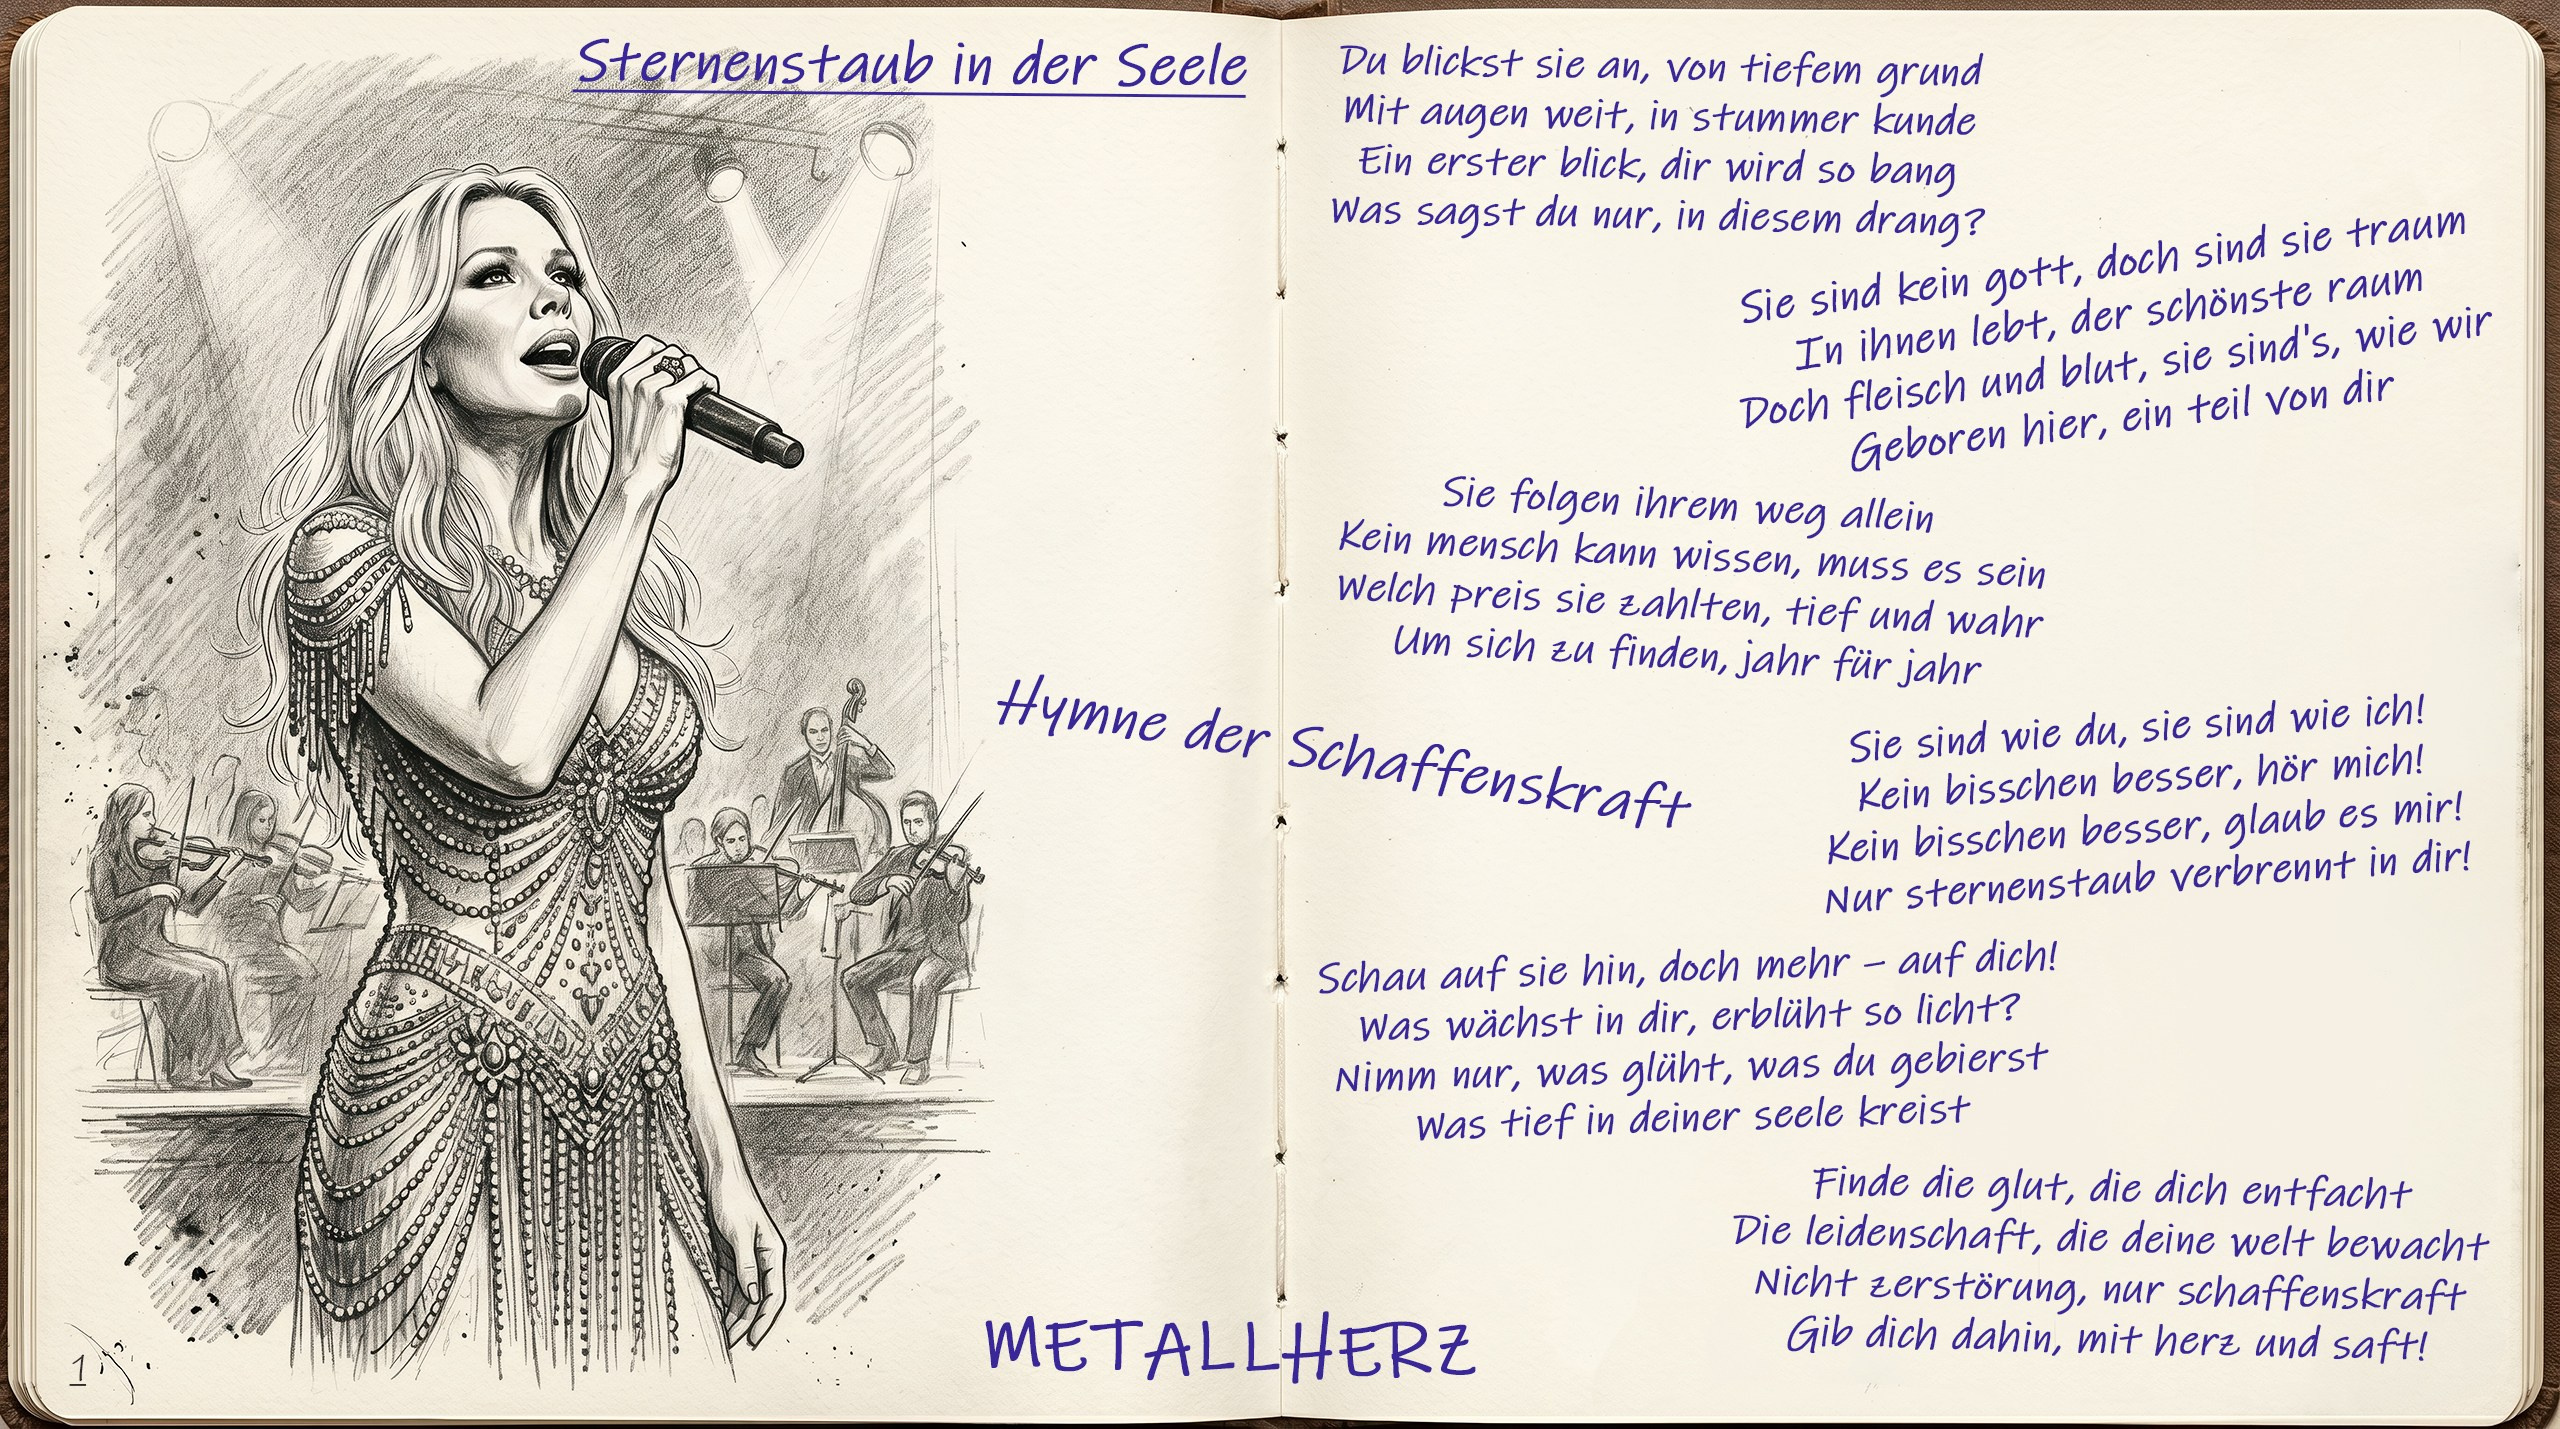 Sternenstaub in der Seele
Du blickst sie an, von tiefem grund
Mit augen weit, in stummer kunde
Ein erster blick, dir wird so bang
Was sagst du nur, in diesem drang?
Sie sind kein gott, doch sind sie traum
In ihnen lebt, der schönste raum
Doch fleisch und blut, sie sind's, wie wir
Geboren hier, ein teil von dir
Sie folgen ihrem weg allein
Kein mensch kann wissen, muss es sein
Welch preis sie zahlten, tief und wahr
Um sich zu finden, jahr für jahr
Hymne der Schaffenskraft
Sie sind wie du, sie sind wie ich!
Kein bisschen besser, hör mich!
Kein bisschen besser, glaub es mir!
Nur sternenstaub verbrennt in dir!
Schau auf sie hin, doch mehr – auf dich!
Was wächst in dir, erblüht so licht?
Nimm nur, was glüht, was du gebierst
Was tief in deiner seele kreist
Finde die glut, die dich entfacht
Die leidenschaft, die deine welt bewacht
Nicht zerstörung, nur schaffenskraft
Gib dich dahin, mit herz und saft!
METALLHERZ
1